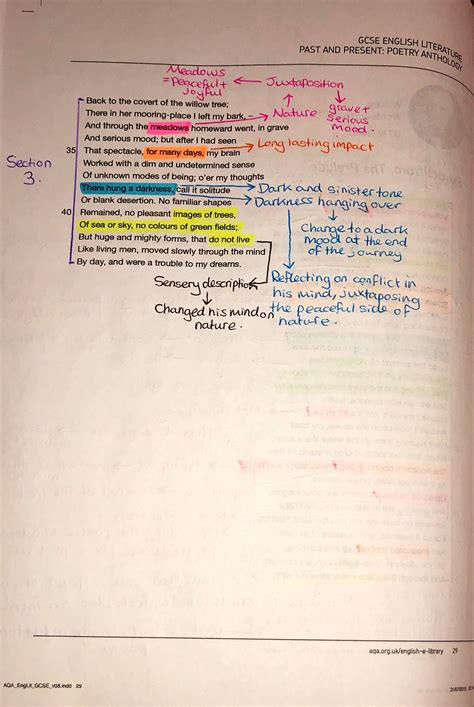 GCSE ENGLISH LITERATURE
PAST AND PRESENT: POETRY ANTHOLOGY
Meadows
= peaceful +
Joyful
Juxtaposition
Back to the covert of the willow tree;
There in her mooring-place I left my bark, –
Nature
grave +
serious
mood.
And through the meadows homeward went, in grave
And serious mood; but after I had seen
35 That spectacle, for many days, my brain
Long lasting impact
Worked with a dim and undetermined sense
Of unknown modes of being; o'er my thoughts
Section
3.
There hung a darkness, call it solitude
Dark and sinister tone
Or blank desertion. No familiar shapes
Darkness hanging over
40 Remained, no pleasant images of trees,
Of sea or sky, no colours of green fields;
But huge and mighty forms, that do not live
Like living men, moved slowly through the mind
By day, and were a trouble to my dreams.
Change to a dark
mood at the end
of the journey
Sensery description
Changed his mind on
nature.
Reflecting on conflict in
his mind, juxtaposing
the peaceful side of
nature.
aqa.org.uk/english-e-library 29
AQA_EngLit_GCSE_v08.indd 29